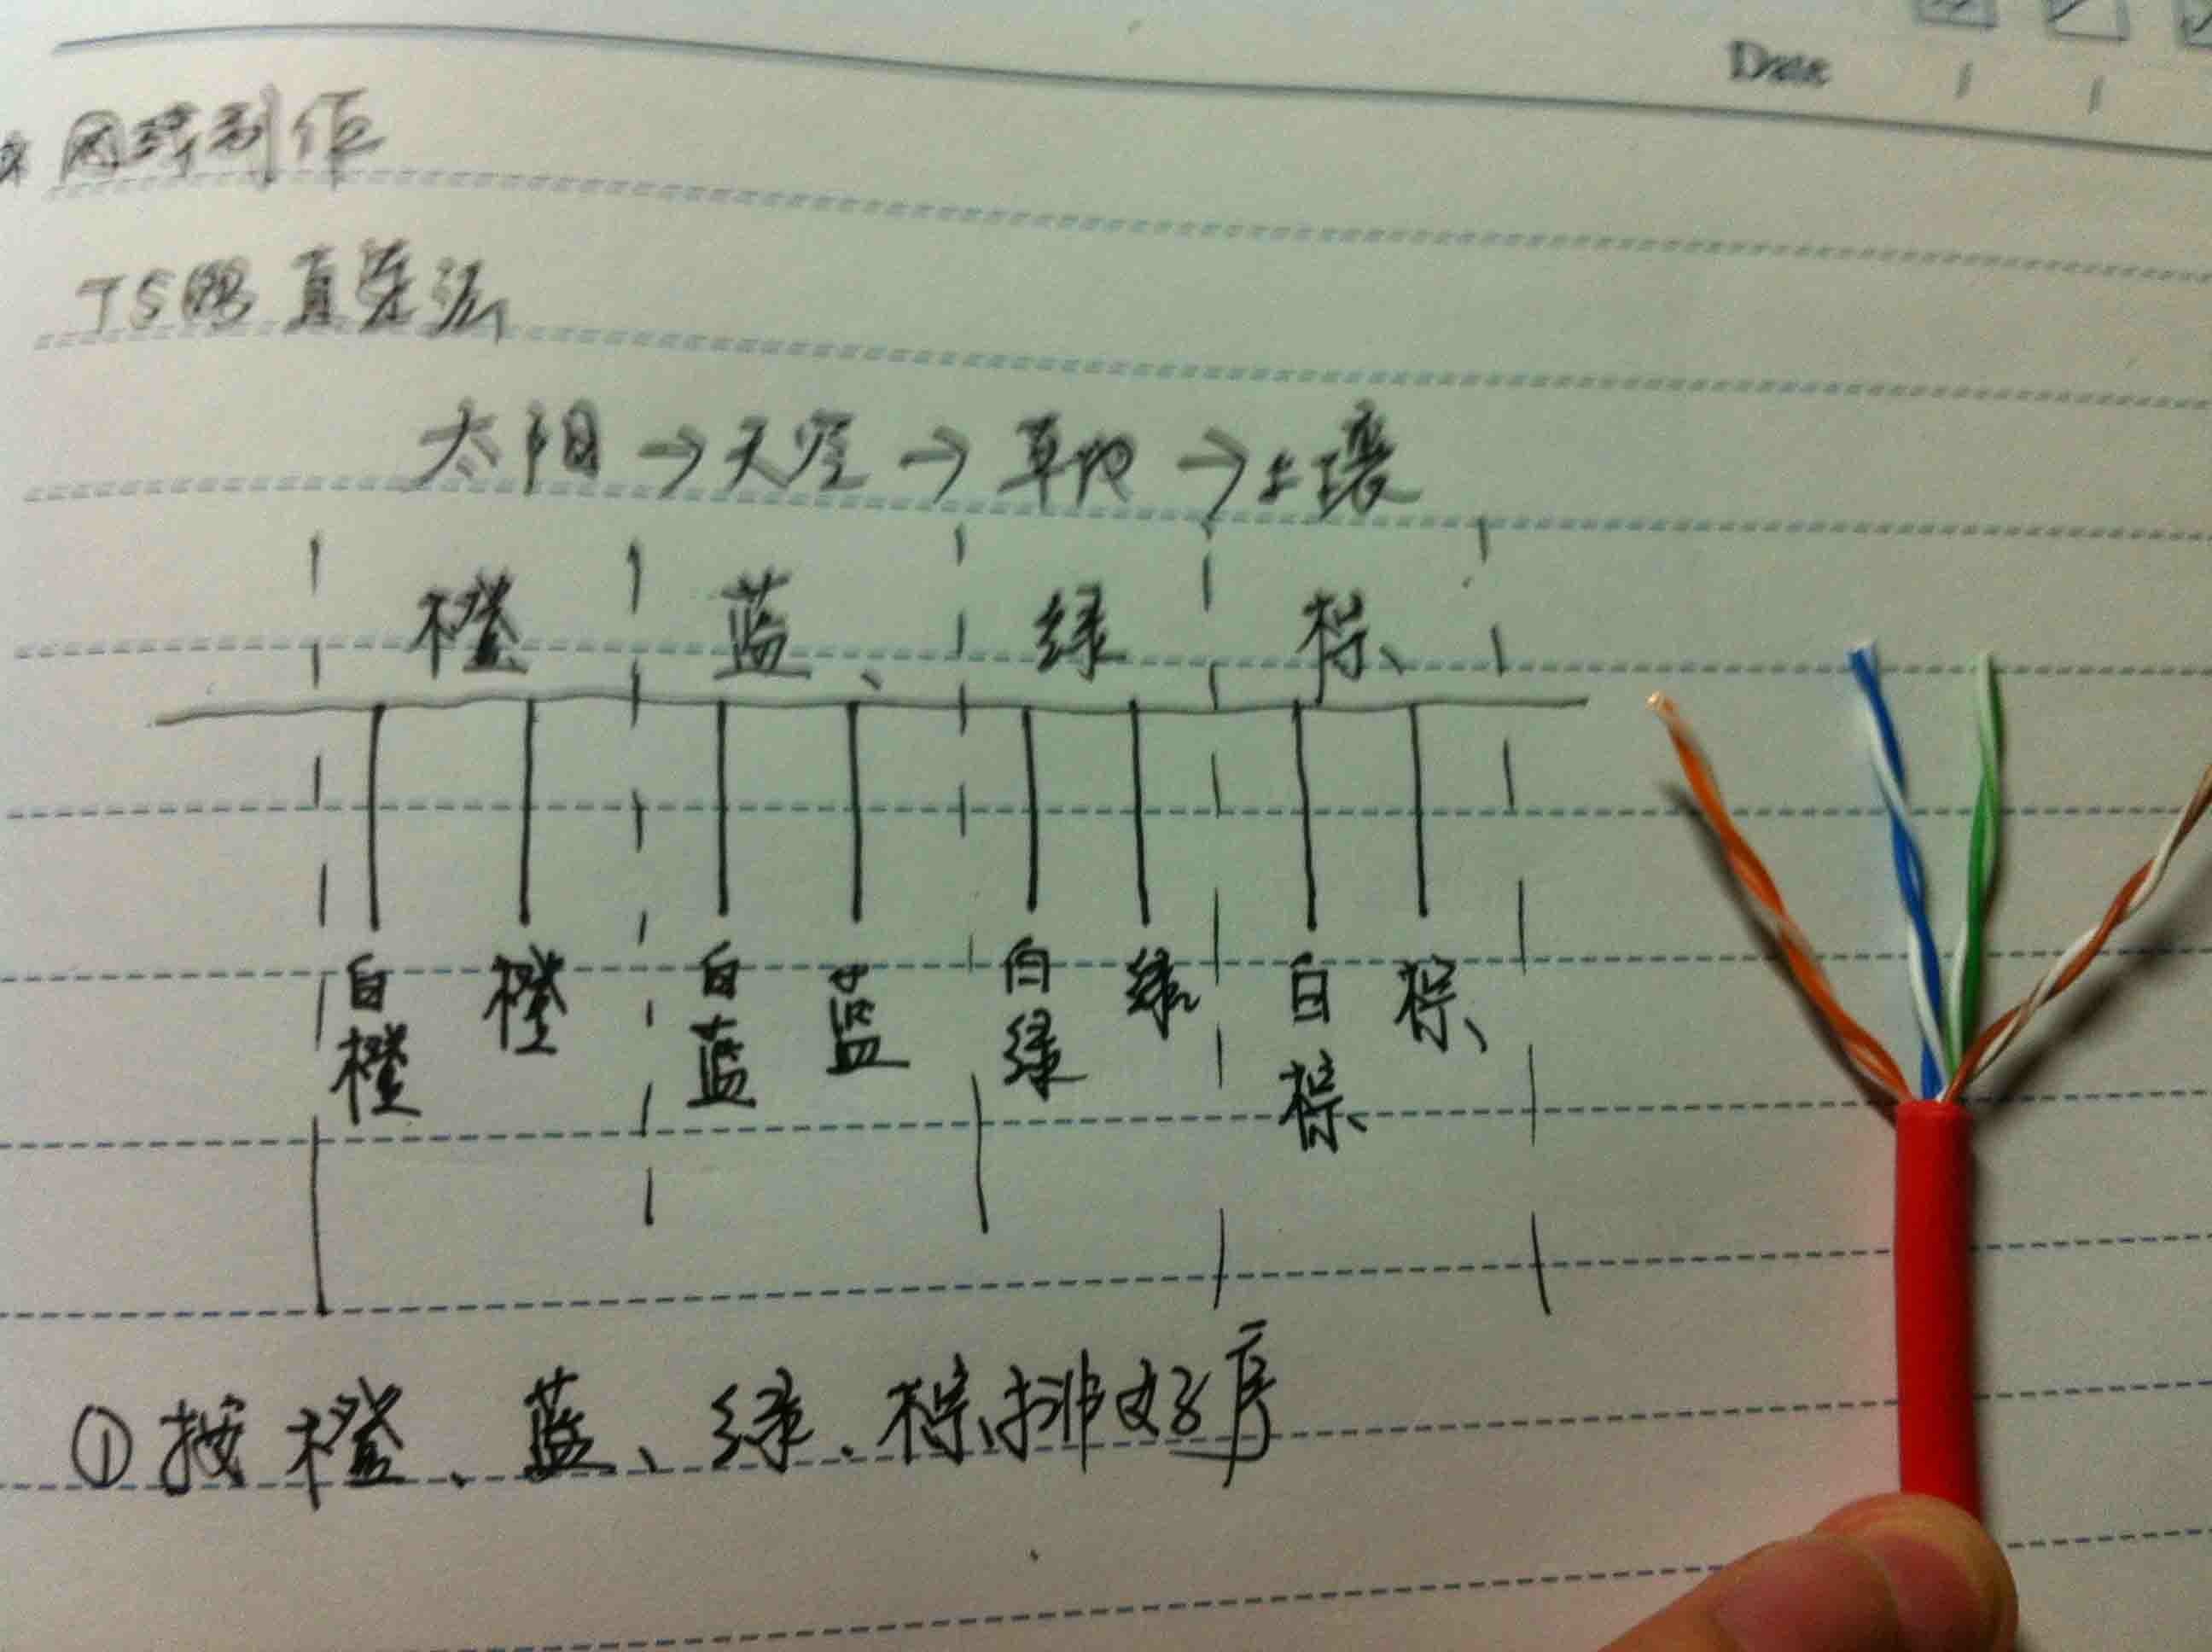 Date
网线制作
T568B 直连法
太阳→天空→草地→土壤
橙 蓝、绿 棕
白橙 橙 白蓝 蓝 白绿 绿 白棕 棕
①按橙、蓝、绿、棕排好序